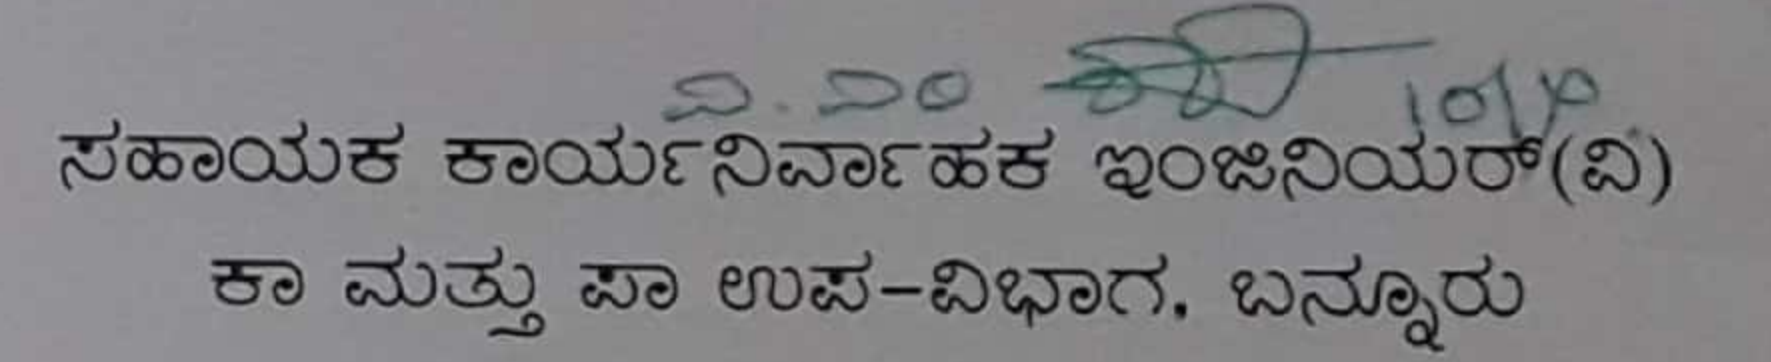 ಸಹಾಯಕ ಕಾರ್ಯನಿರ್ವಾಹಕ ಇಂಜಿನಿಯರ್(ವಿ)
ಕಾ ಮತ್ತು ಪಾ ಉಪ-ವಿಭಾಗ. ಬನ್ನೂರು